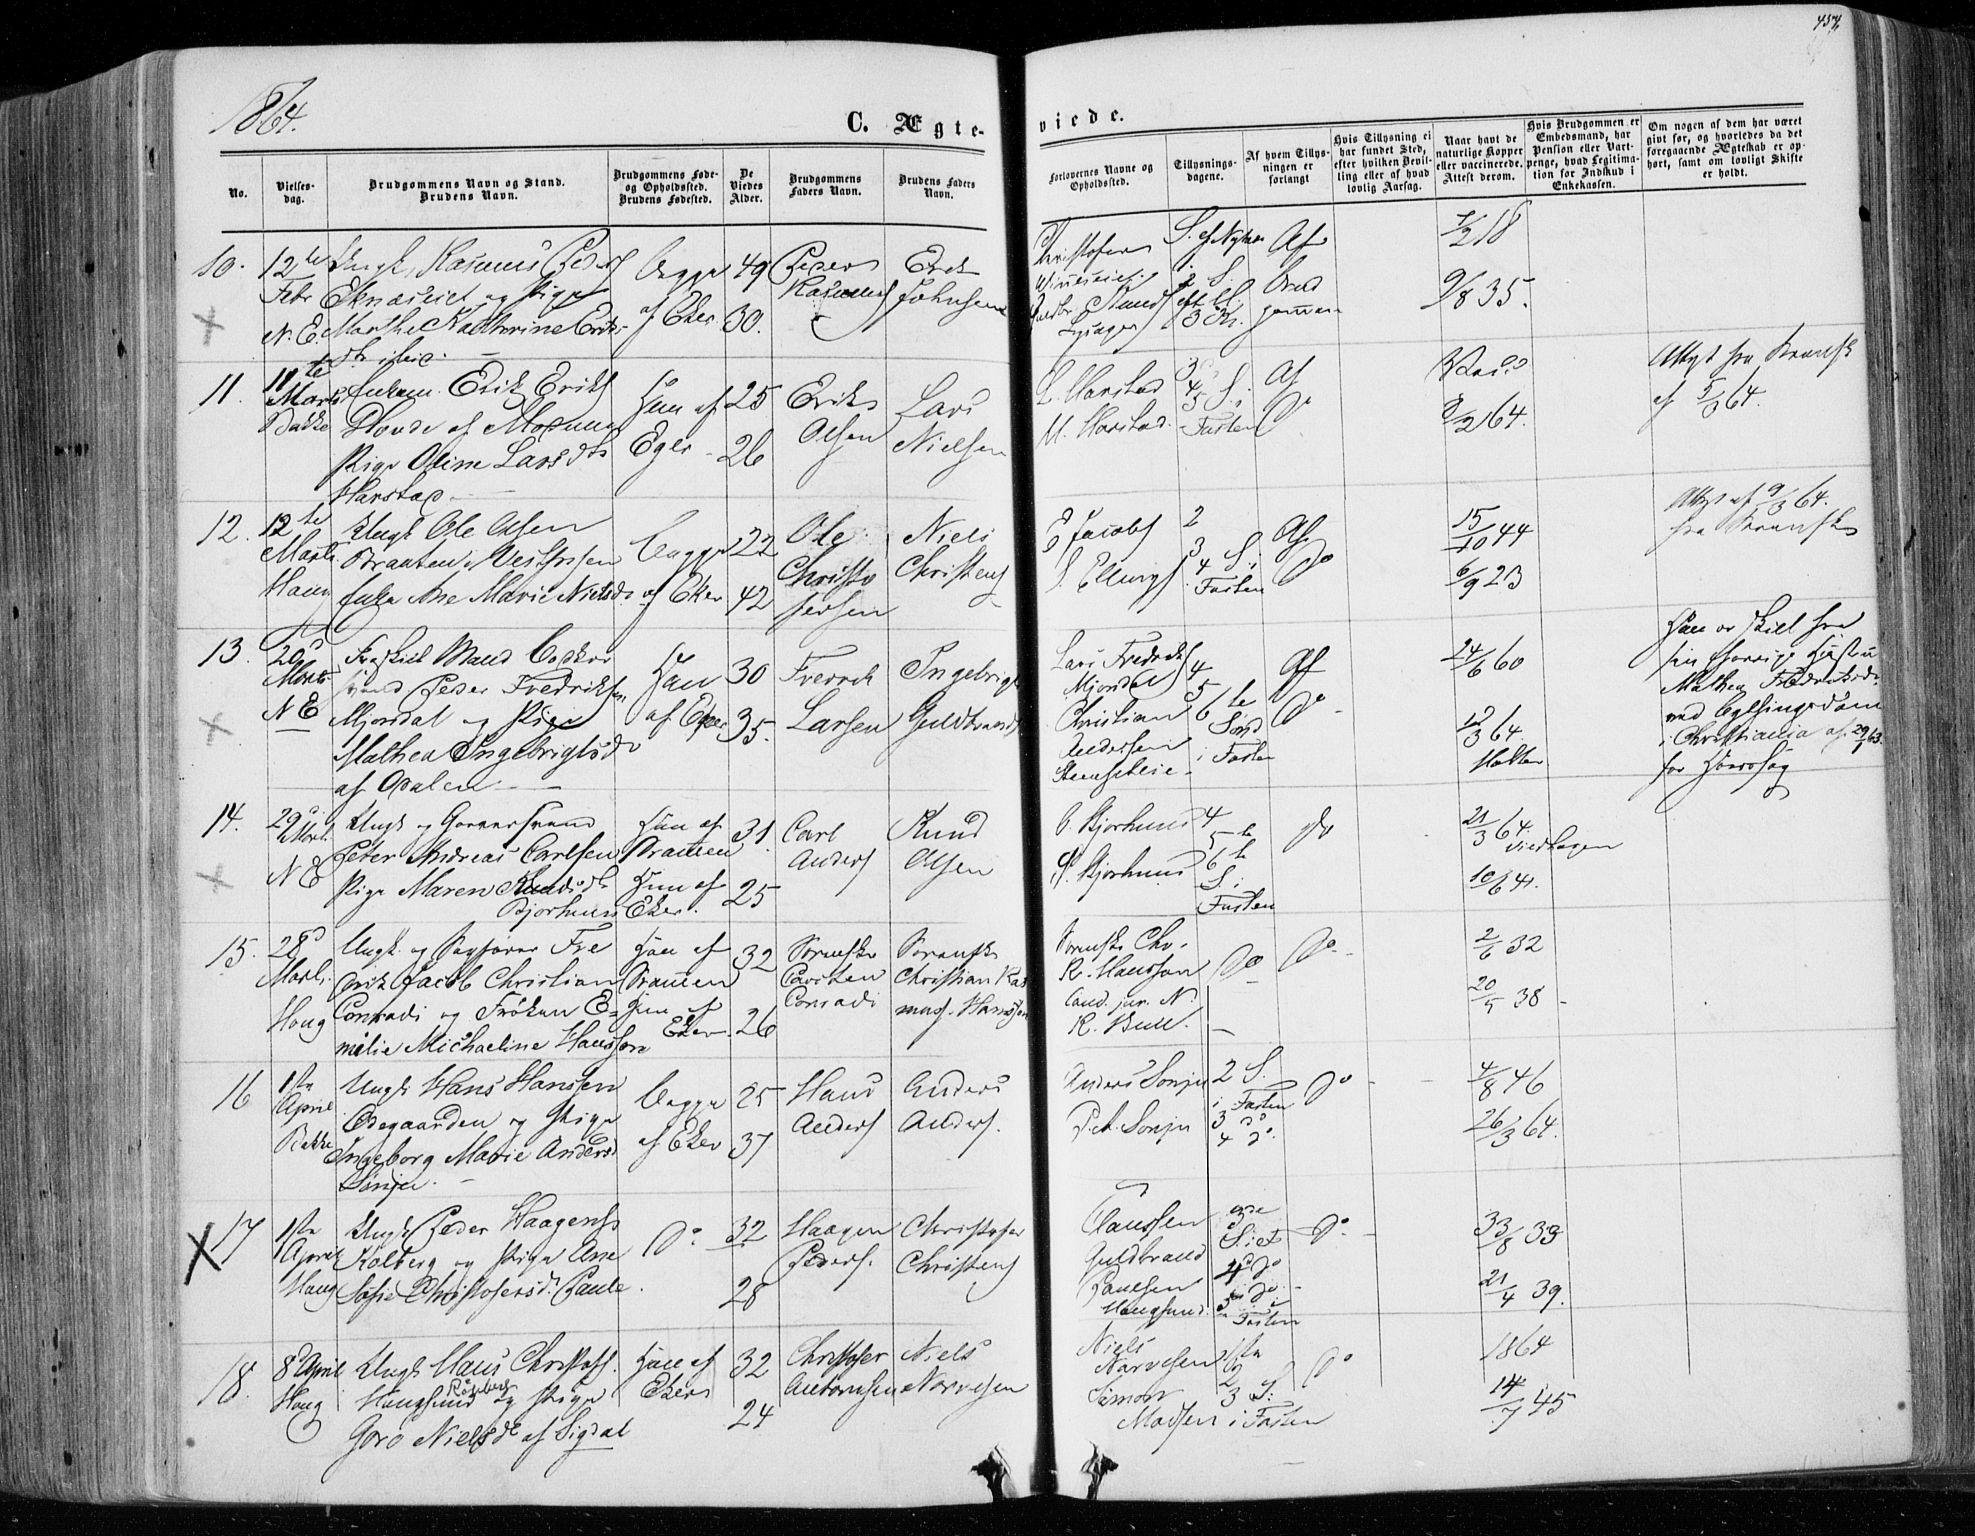 1864.
C. Ægte-
viede.
454
No.
Vielses-
dag.
Brudgommens Navn og Stand.
Brudens Navn.
Brudgommens Føde-
og Opholdssted.
Brudens Fødested.
De
Viedes
Alder.
Brudgommens
Faders Navn.
Brudens Faders
Navn.
Forlovernes Navne og
Opholdssted.
Tillysnings-
dagene.
Af hvem Tillys-
ningen er
forlangt
Hvis Tillysning ei
har fundet Sted,
efter hvilken Bevil-
ling eller af hvad
lovlig Aarsag.
Naar havt de
naturlige Kopper
eller vaccinerede.
Attest derom.
Hvis Brudgommen er
Embedsmand, har
Pension eller Vart-
penge, hvad Legitima-
tion for Indskud i
Enkekassen.
Om nogen af dem har været
gift før, og hvorledes da det
foregaaende Ægteskab er op-
hørt, samt om lovligt Skifte
er holdt.
10.
12te
Febr
N. E.
Ungk. Rasmus Peders
Eknæseiet og Pige
Marthe Kathrine Eriks-
Begge
af Eker
49
30.
Peder
Rasmus
Erik
Johnsen
Christofer
S. ef Nytaar
Af
Brud
gommen
1/2 18
9/8 35.
11.
11te
Marts
Bakke
Enkem. Erik Eriks
Hovde af Modum
Pige Oline Larsdtr
Harstad
Hun af
Eger
25
26
Erik
Olsen
Lars
Nielsen
L. Harstad
M. Harstad.
3
4
5 S. i
Fasten
Af
Do
Vacc.
3/2 64.
Attest fra
af 5/3 64.
12.
12te
Marts
Haug
Ungk Ole Olsen
Braaten Vestfossen
Enke Ane Marie Nielsd.
Begge
af Eker
22
42
Ole
Christo
fersen
Niels
Christens
E Jacobs
S. Ellings
2
3
4 S. i
Fasten
Af
Do
15/10 44
6/9 23
Attest af 9/3 64.
fra
13.
20d
Marts
N E
Fraskilt Mand
Peder Fredriksen
Mjøndal og Pige
Mathea Ingebrigtsd
af Dalen
Han
af Eker
30
35.
Fredrik
Larsen
Ingebrigt
Guldbrands
Lars Fredriks
Mjøndal
Christian
Andersen
Stenseteie
4
5
6te
Sønd
i Fasten
Af
Do
24/6 60
12/3 64
Holter
Han er skilt fra
sin forrige Hustru
Mathea Fredriksd.
ved
i Christiania af 29/1 63.
for Hoersag
14.
29
Marts
N E
Ungk og Garversvend
Peter Andreas Carlsen
Pige Maren Knudsdtr
Bjorhuus
Han af
Drammen
Hun af
Eker.
31.
25
Carl
Anders
Knud
Olsen
O. Bjorhuus
P. Bjorhuus
4
5te
6te
S. i
Fasten
Do
21/3 64
10/6 41.
15.
28d
Marts
Haug
Ungk. og Sagfører Fre
drik Jacob Christian
Conradi og Frøken E-
milie Michaeline Hansson
Han af
Drammen
Hun af
Eker
32
26
Sorenskr
Carsten
Conradi
Sorenskr
Christian Ras
mus. Hansson
Sorenskr. Chr.
R. Hansson
Cand. jur. N.
R. Bull.
Do
Do.
2/6 32
20/5 38
16
1ste
April
Bakke
Ungk Hans Hansen
Ødegaarden og Pige
Ingeborg Marie Andersd
Sønju.
Begge
af Eker
25
37
Hans
Anders
Anders
Anders.
Anders Sønju
P. A. Sønju
2 S.
i Fasten
3 do
4 do.
Do
4/8 46
26/3 64.
17
1ste
April
Haug
Ungk Peder Haagens
Kolberg og Pige Ane
Sofie Christofersd. Paule
Do.
32
28
Haagen
Peders.
Christofer
Christens
Clanssen
Guldbrand
Paulsen
Haugsund
3die
S. i F
4 do
5 do i
Fasten
Do.
33/8 33
21/4 39.
18.
8 April
Haug
Ungk Hans Christofs.
Haugsund og Pige
Goro Nielsdtr af Sigdal
Han af
Eker
32
24
Christofer
Antonsen
Niels
Narvesen
Niels
Narvesen
Simon
Madsen
1ste
2
3 S.
i Fasten
Do
1864
14/7 45